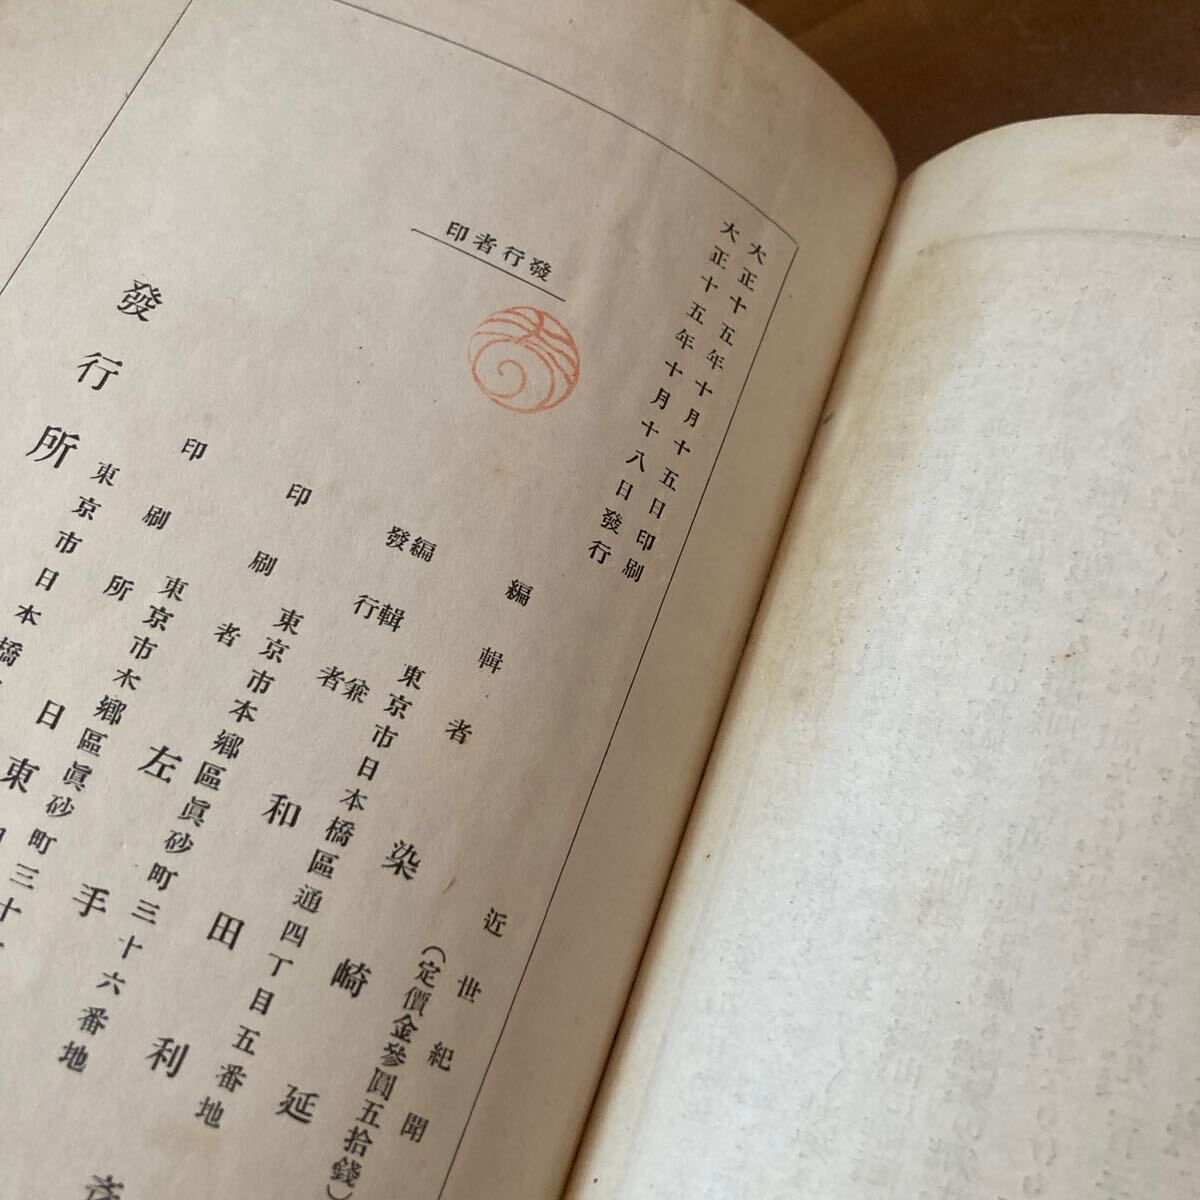 大正十五年十月十五日印刷
大正十五年十月十八日發行
發行者印
近世紀聞
(定價金參圓五拾錢)
編輯者 染崎延
編輯兼
發行者
東京市日本橋區通四丁目五番地
和田利彦
印刷者
東京市本鄉區眞砂町三十六番地
左手
印刷所
東京市本鄉區眞砂町三十
日東
發行所
東京市日本橋